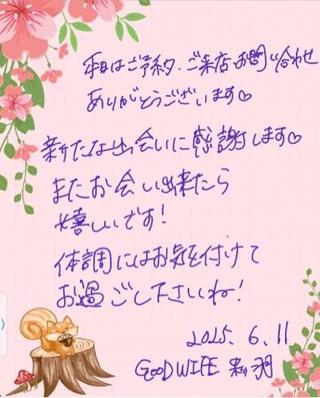 本日はご予約、ご来店、お問い合わせ
ありがとうございます♡
新たな出会いに感謝します♡
またお会い出来たら
嬉しいです!
体調にはお気を付けて
お過ごし下さいね!
2025.6.11
GOOD WIFE